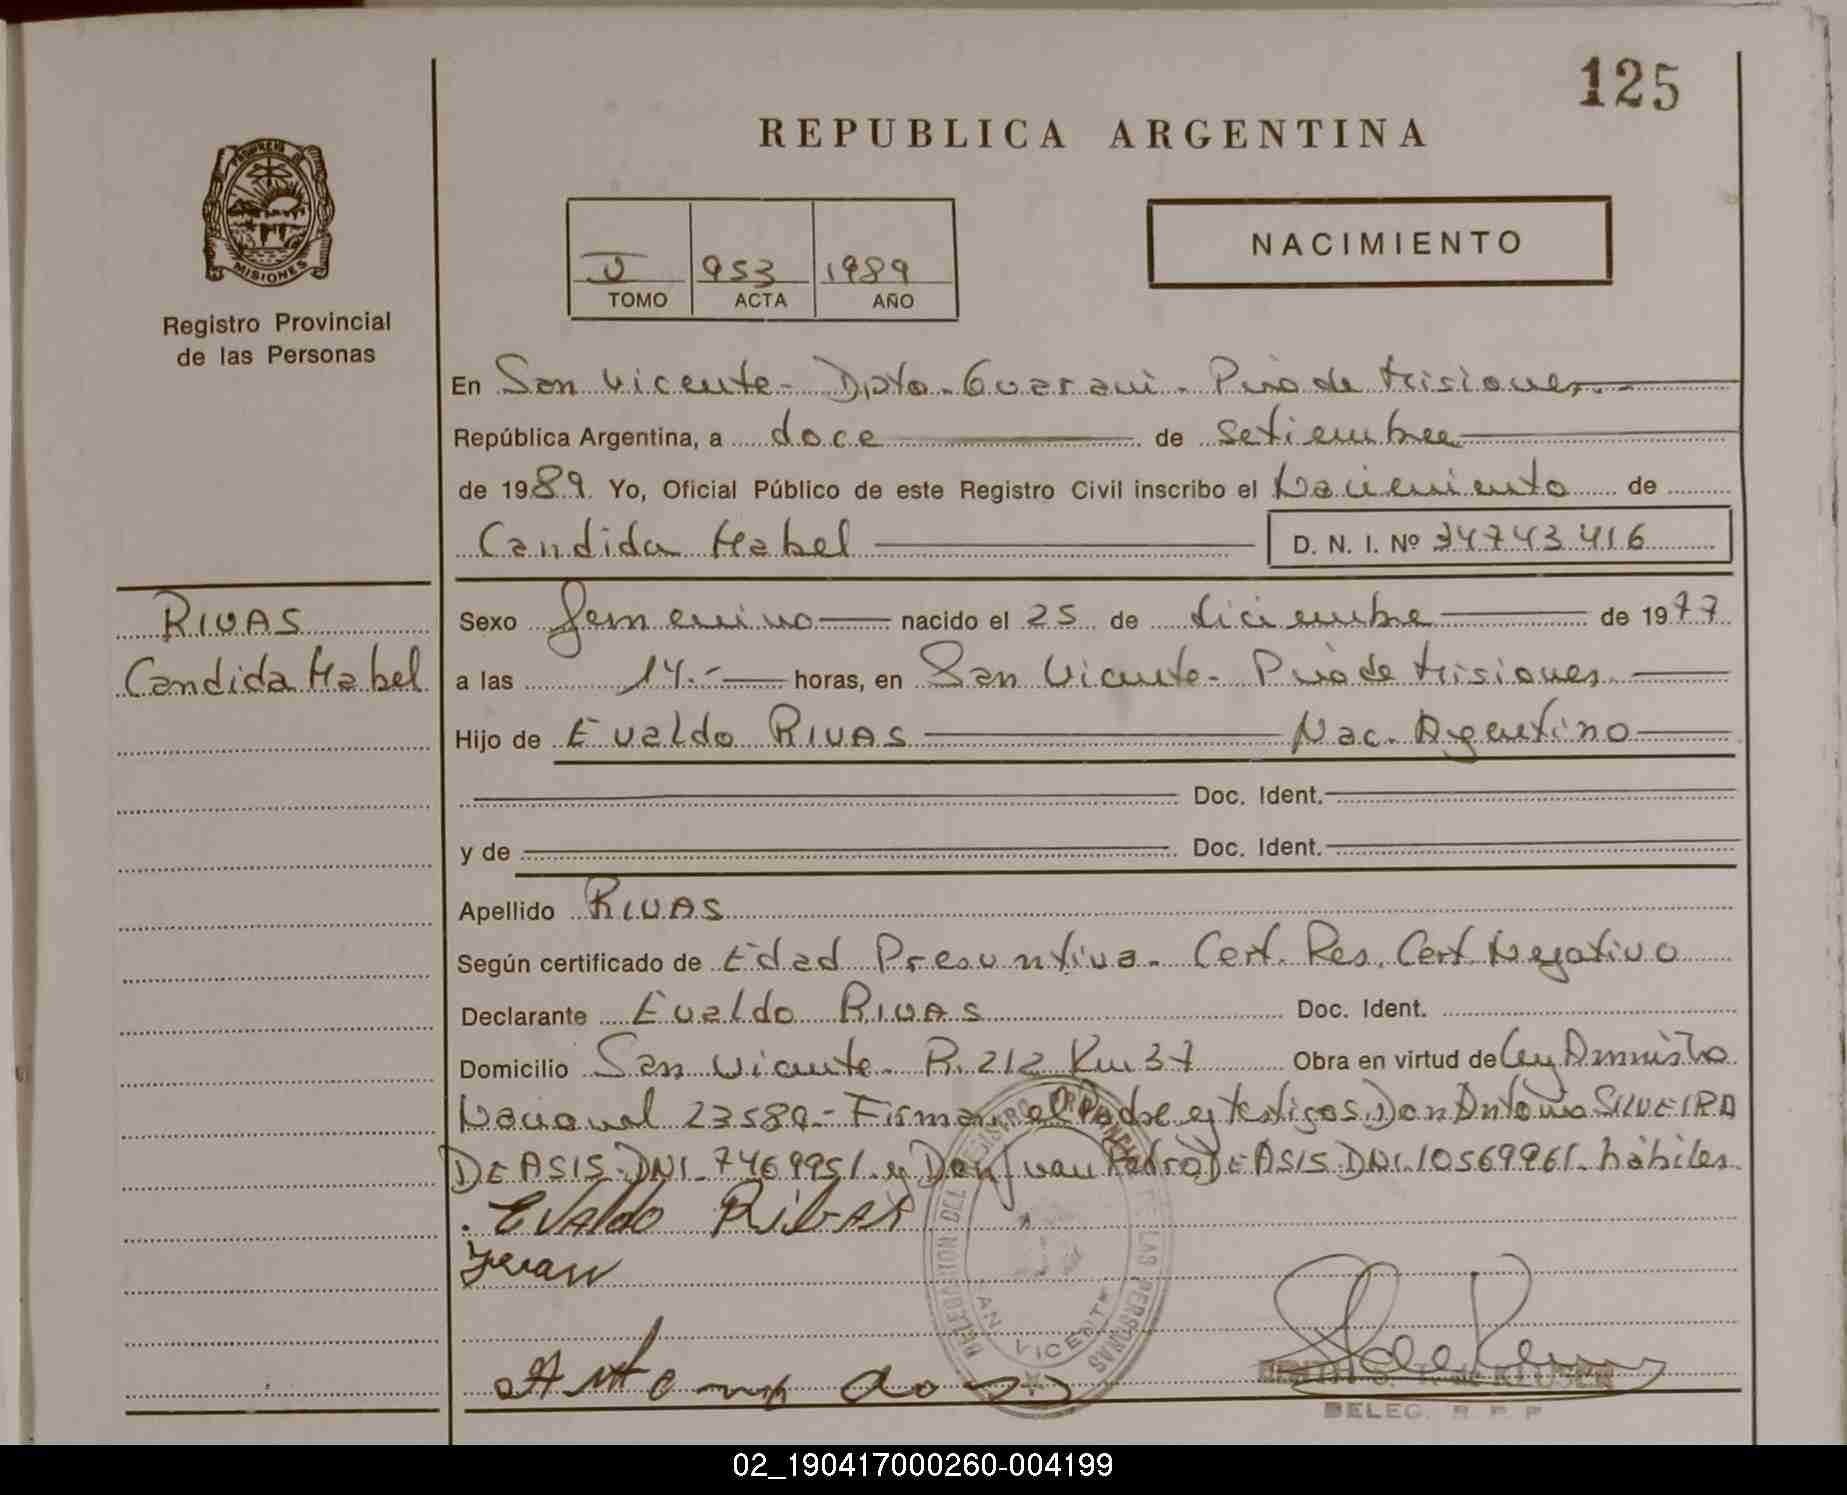 125
REPUBLICA ARGENTINA
PROVINCIA DE
MISIONES
Registro Provincial
de las Personas
V 953 1989
TOMO ACTA AÑO
NACIMIENTO
En San Vicente - Dpto. Guarani - Pvia de Misiones.
República Argentina, a doce de setiembre
de 1989. Yo, Oficial Público de este Registro Civil inscribo el Nacimiento de
Candida Mabel D. N. I. Nº 34743416
RIVAS
Candida Mabel
Sexo femenino nacido el 25 de diciembre de 1977
a las 14.- horas, en San Vicente - Pvia de Misiones.
Hijo de Evaldo RIVAS Nac. Argentino
Doc. Ident.
y de Doc. Ident.
Apellido RIVAS
Según certificado de Edad Presuntiva. Cert. Res. Cert. Negativo
Declarante Evaldo RIVAS Doc. Ident.
Domicilio San Vicente - R. 212 Km 37 Obra en virtud de Ley Amnistia
Nacional 23589.- Firman el Padre y testigos Don Antonio SILVEIRA
DE ASIS. DNI. 7469951. y Don Juan Pedro DE ASIS DNI. 10569961. hábiles.
Evaldo Ribas
Juan
DELEGACION DEL REGISTRO PROVINCIAL DE LAS PERSONAS
SAN VICENTE
DELEG. R. P. P.
02_190417000260-004199